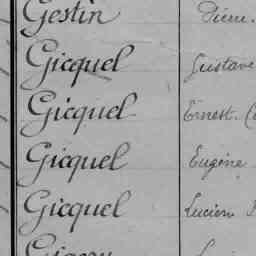 Gestin Pierre
Gicquel Gustave
Gicquel Ernest
Gicquel Eugène
Gicquel Lucien